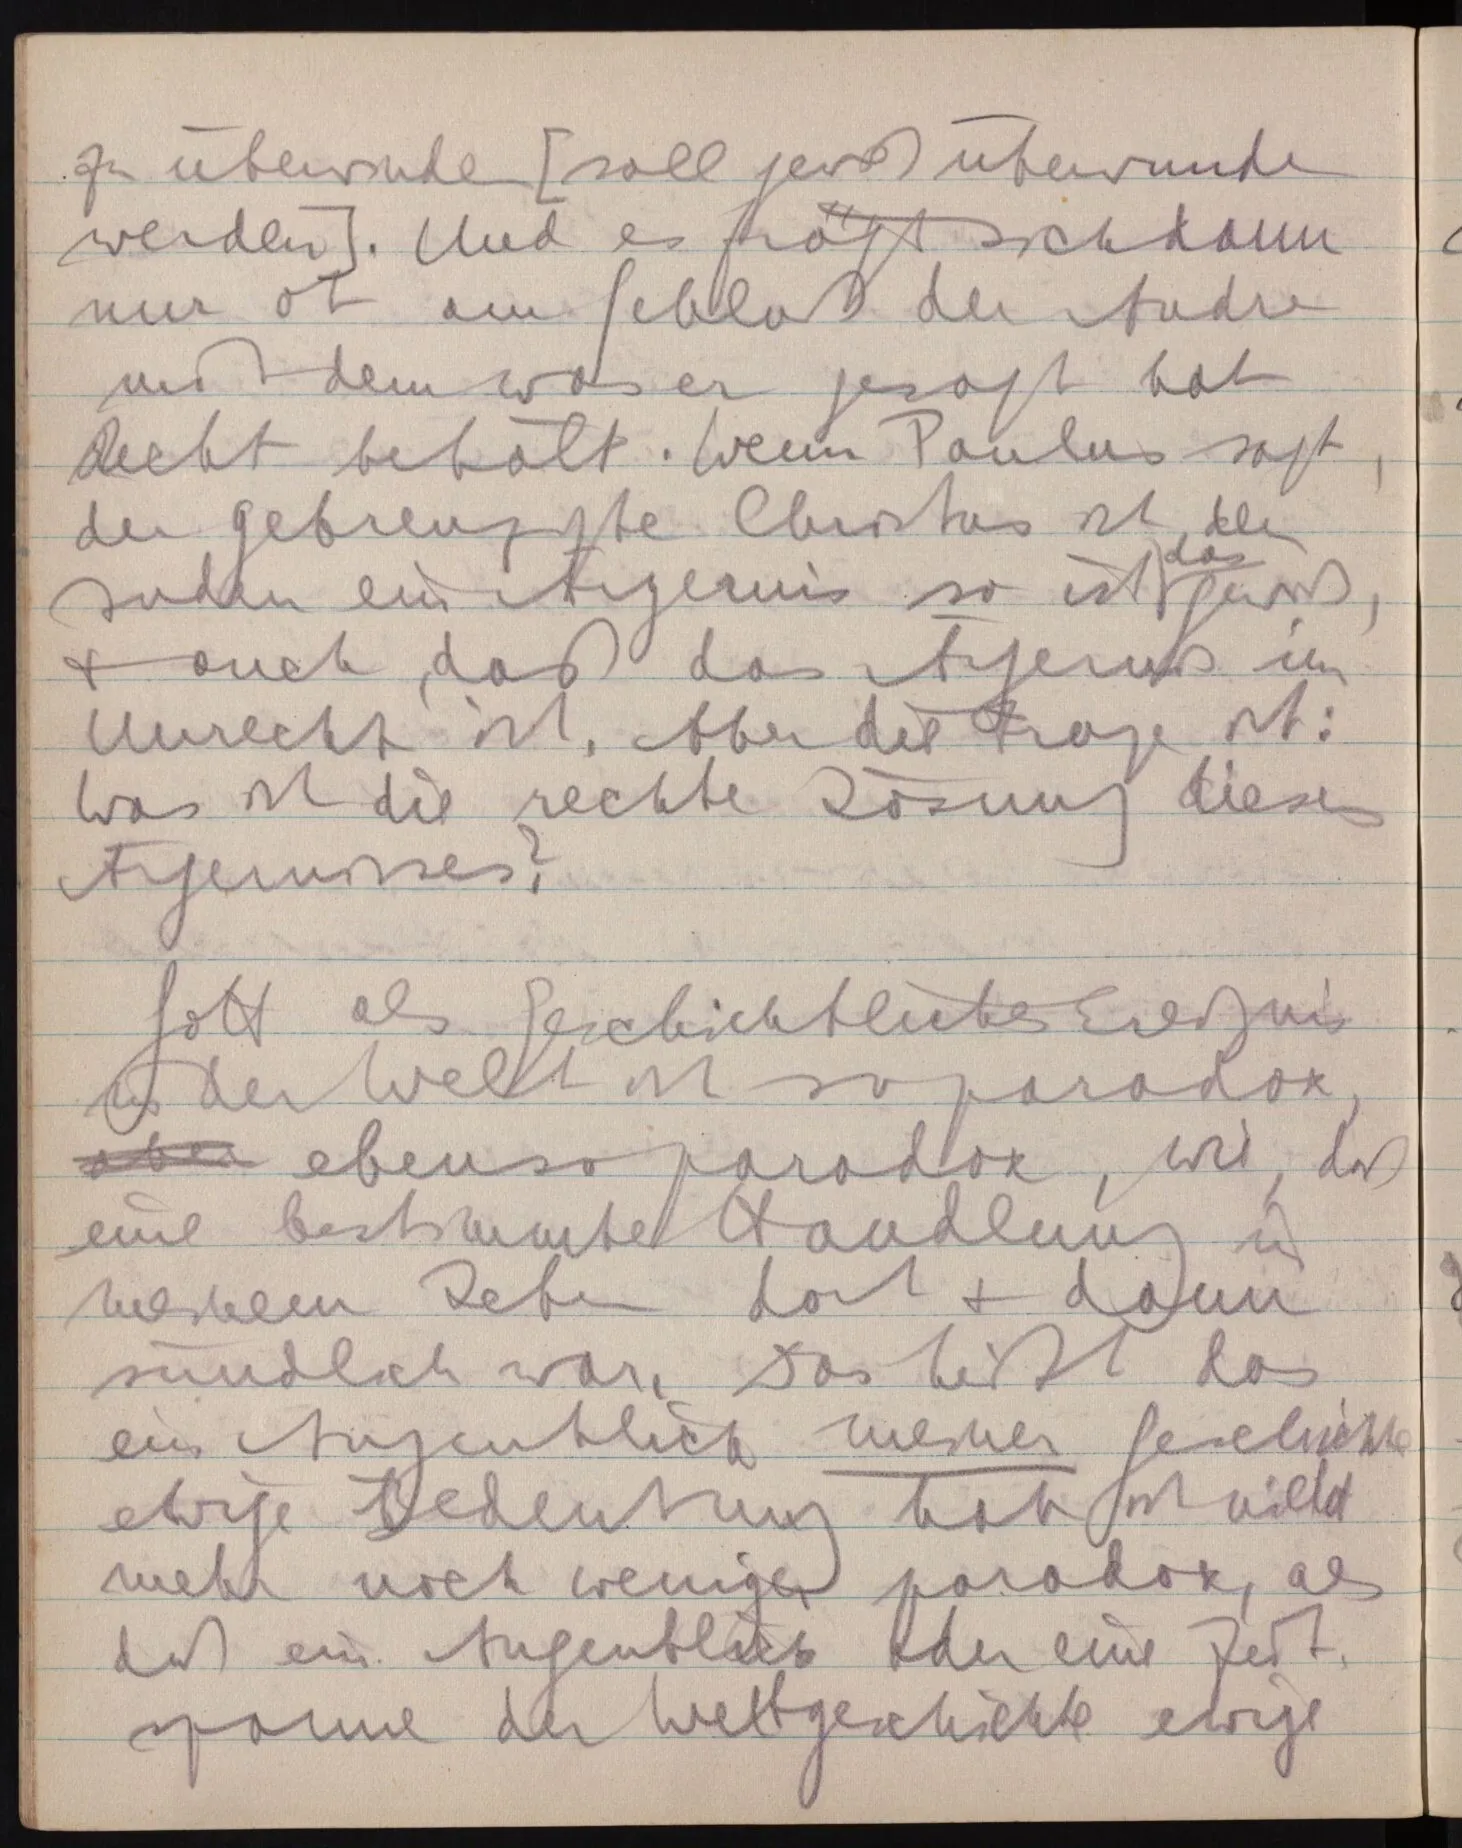 zu überwinden [soll gewiß überwunden
werden]. Und es frägt sich dann
nur ob am Schluß der Andre
mit dem was er gesagt hat
Recht behält. Wenn Paulus sagt,
der gekreuzigte Christus ist den
Juden ein Ärgernis so ist das gewiß,
& auch, daß das Ärgernis im
Unrecht ist. Aber die Frage ist:
Was ist die rechte Lösung dieses
Ärgernisses?
Gott als geschichtliches Ereignis
in der Welt ist so paradox,
aber ebenso paradox, wie, daß
eine bestimmte Handlung in
meinem Leben dort & dann
sündlich war. Das heißt das
ein Augenblick meiner Geschichte
ewige Bedeutung hat ist nicht
mehr noch weniger paradox, als
daß ein Augenblick oder eine Zeit-
spanne der Weltgeschichte ewige